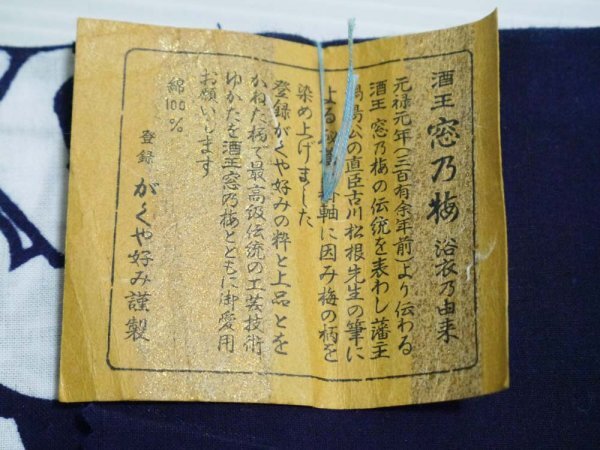 酒王 窓乃梅 浴衣乃由来
元禄元年(三百有余年前)より伝わる
酒王 窓乃梅の伝統を表わし藩主
鍋島公の直臣古川松根先生の筆に
よる 掛軸に因み梅の柄を
染め上げました
登録がくや好みの粋と上品とを
かねた柄で最高級伝統の工芸技術
ゆかたを酒王窓乃梅とともに御愛用
お願いします
綿100%
登録 がくや好み謹製